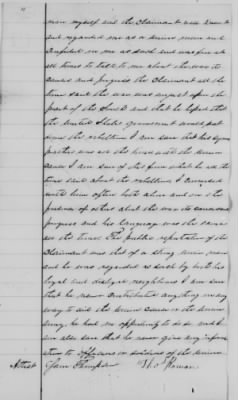 man myself and the Claimant well knew it
and regarded me as a Union man and
Confided in me as such and was free at
all times to talk to me about the war its
Causes and progress the Claimant all the
time said the war was unjust upon the
part of the South and that he hoped that
the United States government would put
down the rebellion I am sure that his sym
pathies was all the time with the Union
Cause I am sure of this from what he all the
time said about the rebellion I conversed
with him often both alone and in the
presence of others about the war its causes and
progress and his language was the same
all the time The public reputation of the
Claimant was that of a strong Union man
and he was regarded as such by both his
loyal and disloyal neighbors I am sure
that he never Contributed anything in any
way to aid the Union Cause or the Union
army, he had no opportunity to do so and I
am also sure that he never give any infor
mation to Officers or soldiers of the Union
Attest Sam